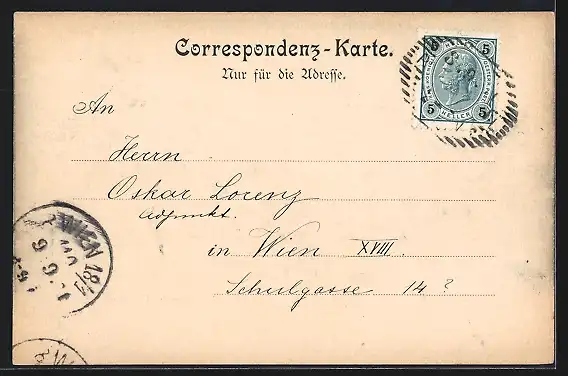 Correspondenz-Karte.
Nur für die Adresse.
5 5
5 HELLER 5
An
Herrn
Oskar Lorenz
Adjunkt.
in Wien XVIII.
Schulgasse 14?
WIEN 18/1